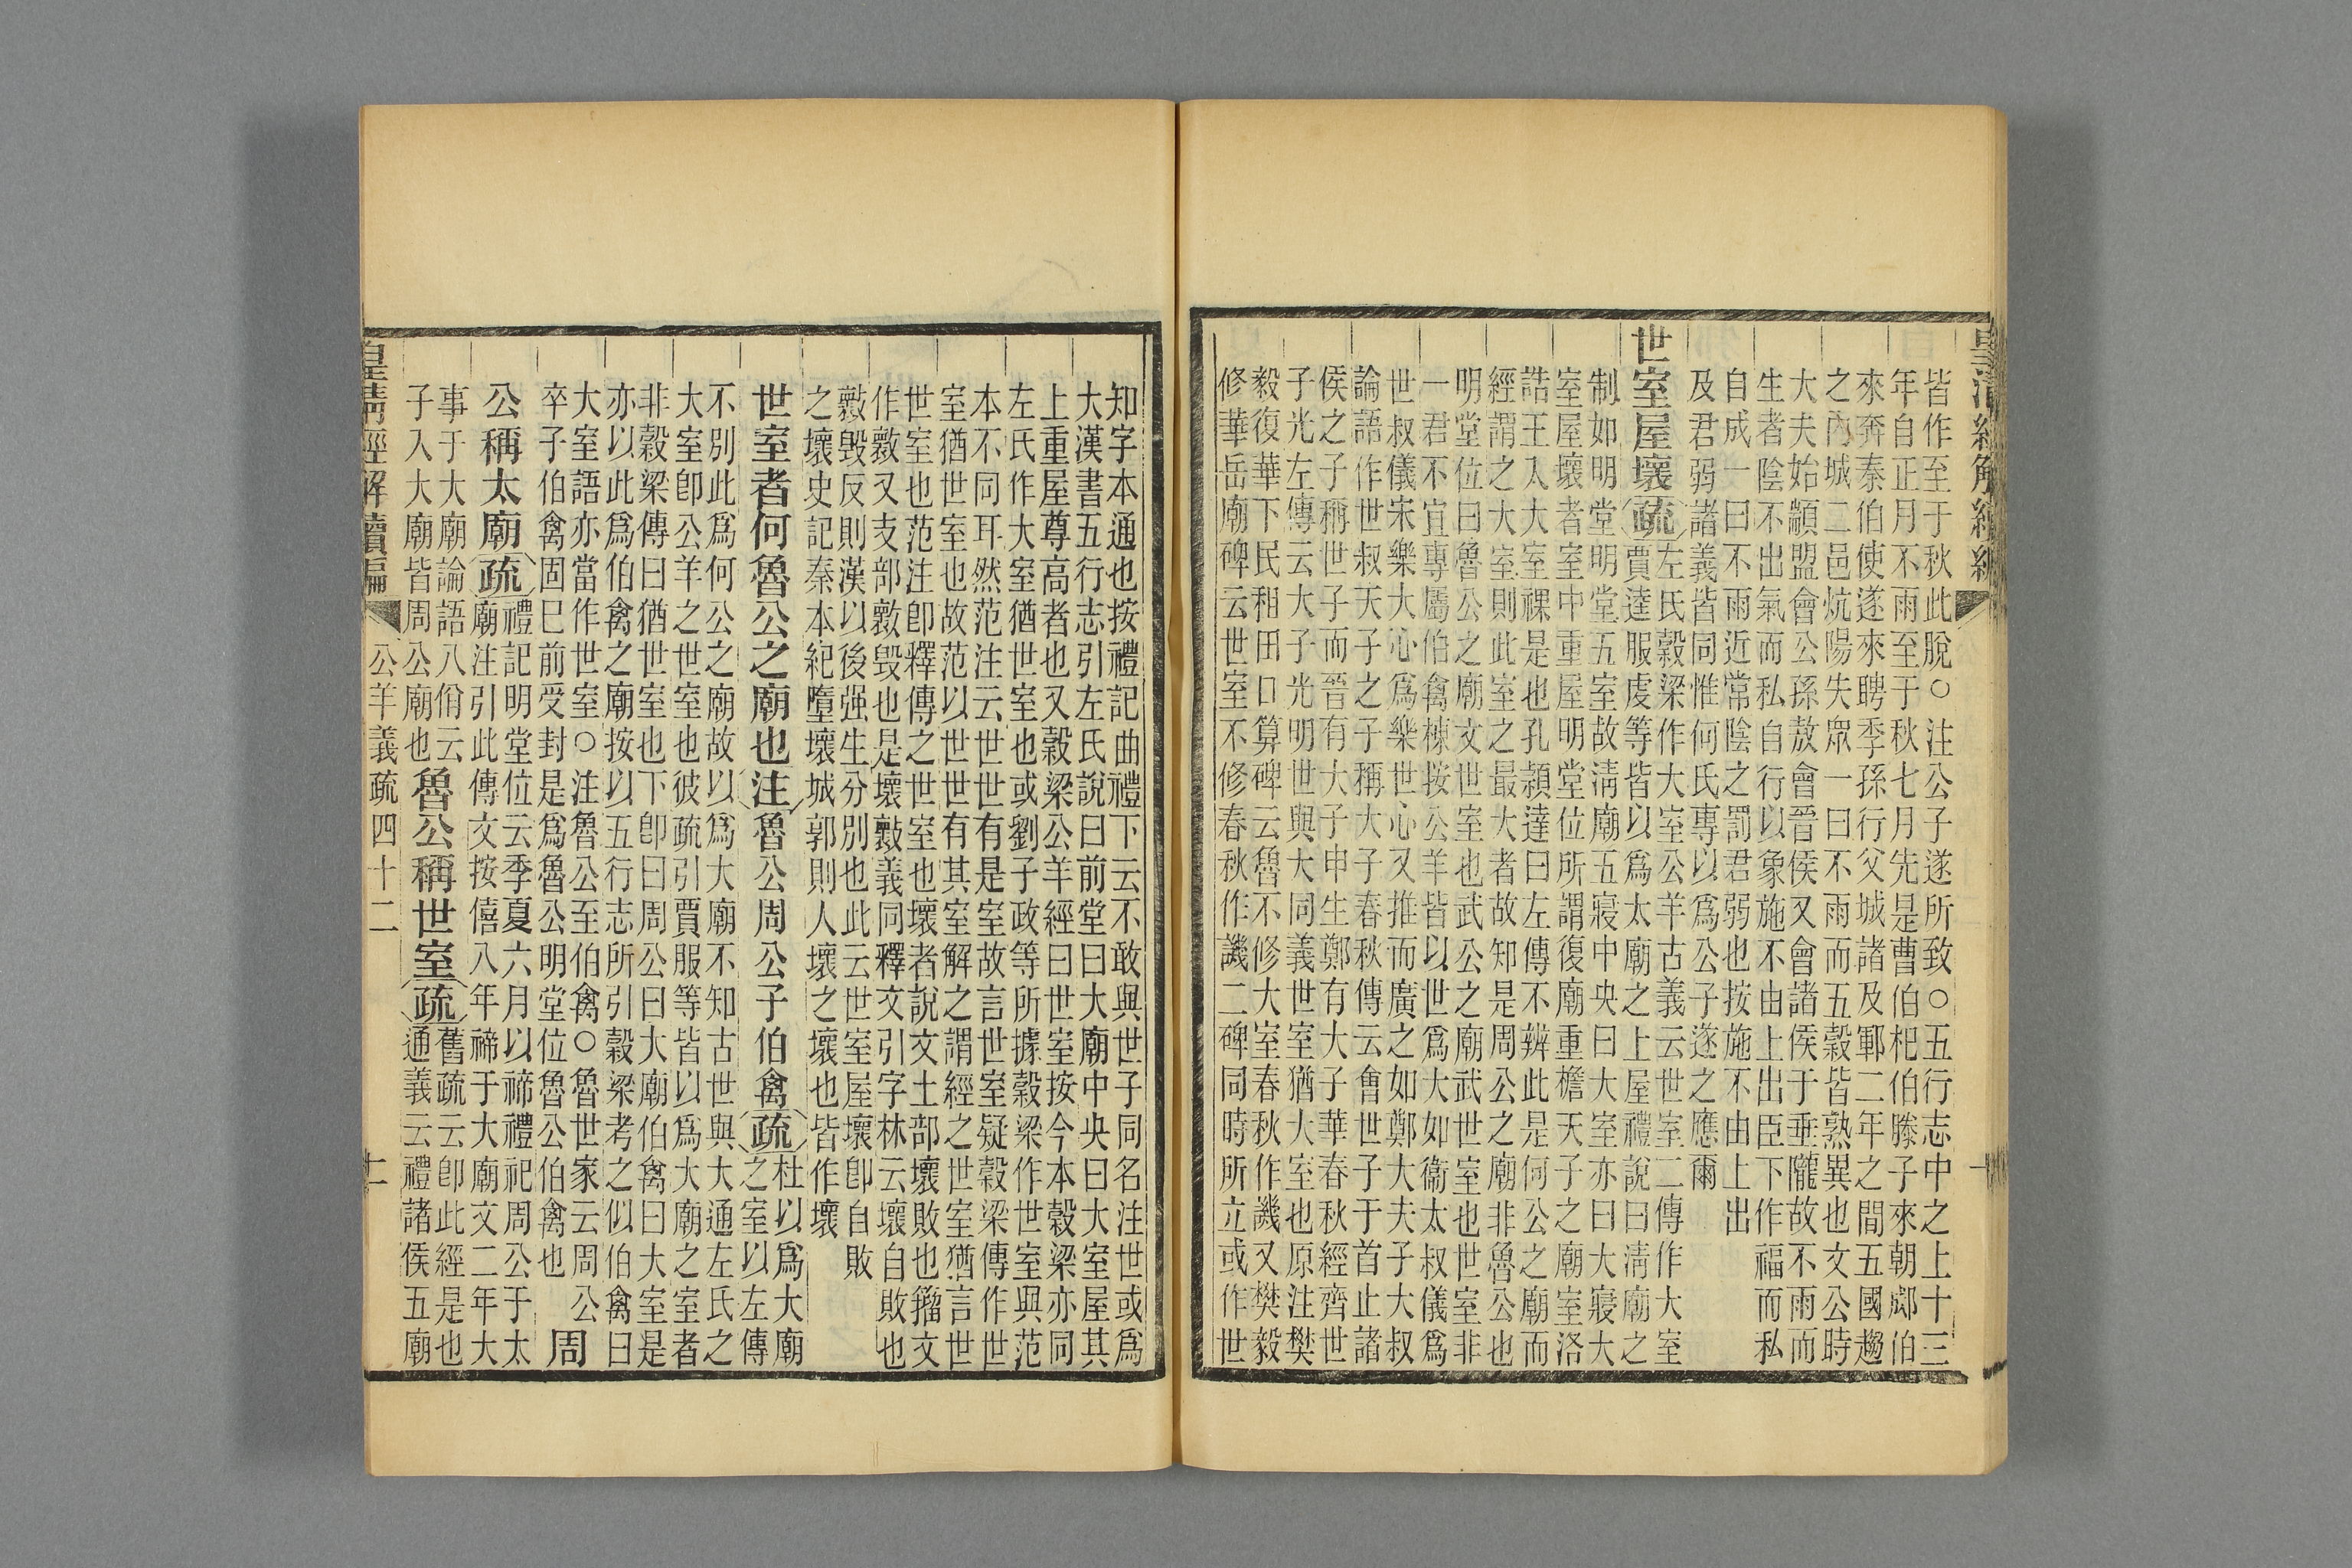 皇清經解續編
皆作至于秋此脫○注公子遂所致○五行志中之上十三
年自正月不雨至于秋七月先是曹伯杞伯滕子來朝郕伯
來奔秦伯使遂來聘季孫行父城諸及鄆二年之間五國趨
之內城二邑炕陽失眾一曰不雨而五穀皆熟異也文公時
大夫始顓盟會公孫敖會晉侯又會諸侯于垂隴故不雨而
生者陰不出氣而私自行以象施不由上出臣下作福而私
自成一曰不雨近常陰之罰君弱也按施不由上出
及君弱諸義皆同惟何氏專以為公子遂之應爾
世室屋壞疏左氏穀梁作大室公羊古義云世室二傳作大室
賈逵服虔等皆以爲太廟之上屋禮說曰淸廟之
制如明堂明堂五室故淸廟五寢中央曰大室亦曰大寢大
室屋壞者室中重屋明堂位所謂復廟重檐天子之廟室洛
誥王入大室祼是也孔穎達曰左傳不辨此是何公之廟而
經謂之大室則此室之最大者故知是周公之廟非魯公也
明堂位曰魯公之廟文世室也武公之廟武世室也世室非
一君不宜專屬伯禽棟按公羊皆以世爲大如衞太叔儀爲
世叔儀宋樂大心爲樂世心又推而廣之如鄭大夫子大叔
論語作世叔天子之子稱大子春秋傳云會世子于首止諸
侯之子稱世子而晉有大子申生鄭有大子華春秋經齊世
子光左傳云大子光明世與大同義世室猶大室也原注樊
毅復華下民租田口算碑云魯不修大室春秋作譏又樊毅
修華岳廟碑云世室不修春秋作譏二碑同時所立或作世
知字本通也按禮記曲禮下云不敢與世子同名注世或爲
大漢書五行志引左氏說曰前堂曰大廟中央曰大室屋其
上重屋尊高者也又穀梁公羊經曰世室按今本穀梁亦同
左氏作大室猶世室也或劉子政等所據穀梁作世室與范
本不同耳然范注云世世有是室故言世室疑穀梁傳作世
室猶世室也故范以世世有其室解之謂經之世室猶言世
世室也范注卽釋傳之世室也壞者說文土部壞敗也籀文
作𣀩又攴部𣀩毀也是壞𣀩義同釋文引字林云壞自敗也
𣀩毀反則漢以後强生分別也此云世室屋壞卽自敗
之壞史記秦本紀墮壞城郭則人壞之壞也皆作壞
世室者何魯公之廟也注魯公周公子伯禽疏杜以爲大廟
之室以左傳
不別此爲何公之廟故以爲大廟不知古世與大通左氏之
大室卽公羊之世室也彼疏引賈服等皆以爲大廟之室者
非穀梁傳曰猶世室也下卽曰周公曰大廟伯禽曰大室是
亦以此爲伯禽之廟按以五行志所引穀梁考之似伯禽曰
大室語亦當作世室○注魯公至伯禽○魯世家云周公
卒子伯禽固已前受封是爲魯公明堂位魯公伯禽也周
公稱太廟疏禮記明堂位云季夏六月以禘禮祀周公于太
廟注引此傳文按僖八年禘于大廟文二年大
事于大廟論語八佾云
子入大廟皆周公廟也魯公稱世室疏舊疏云卽此經是也
通義云禮諸侯五廟
皇清經解續編
公羊義疏四十二
二